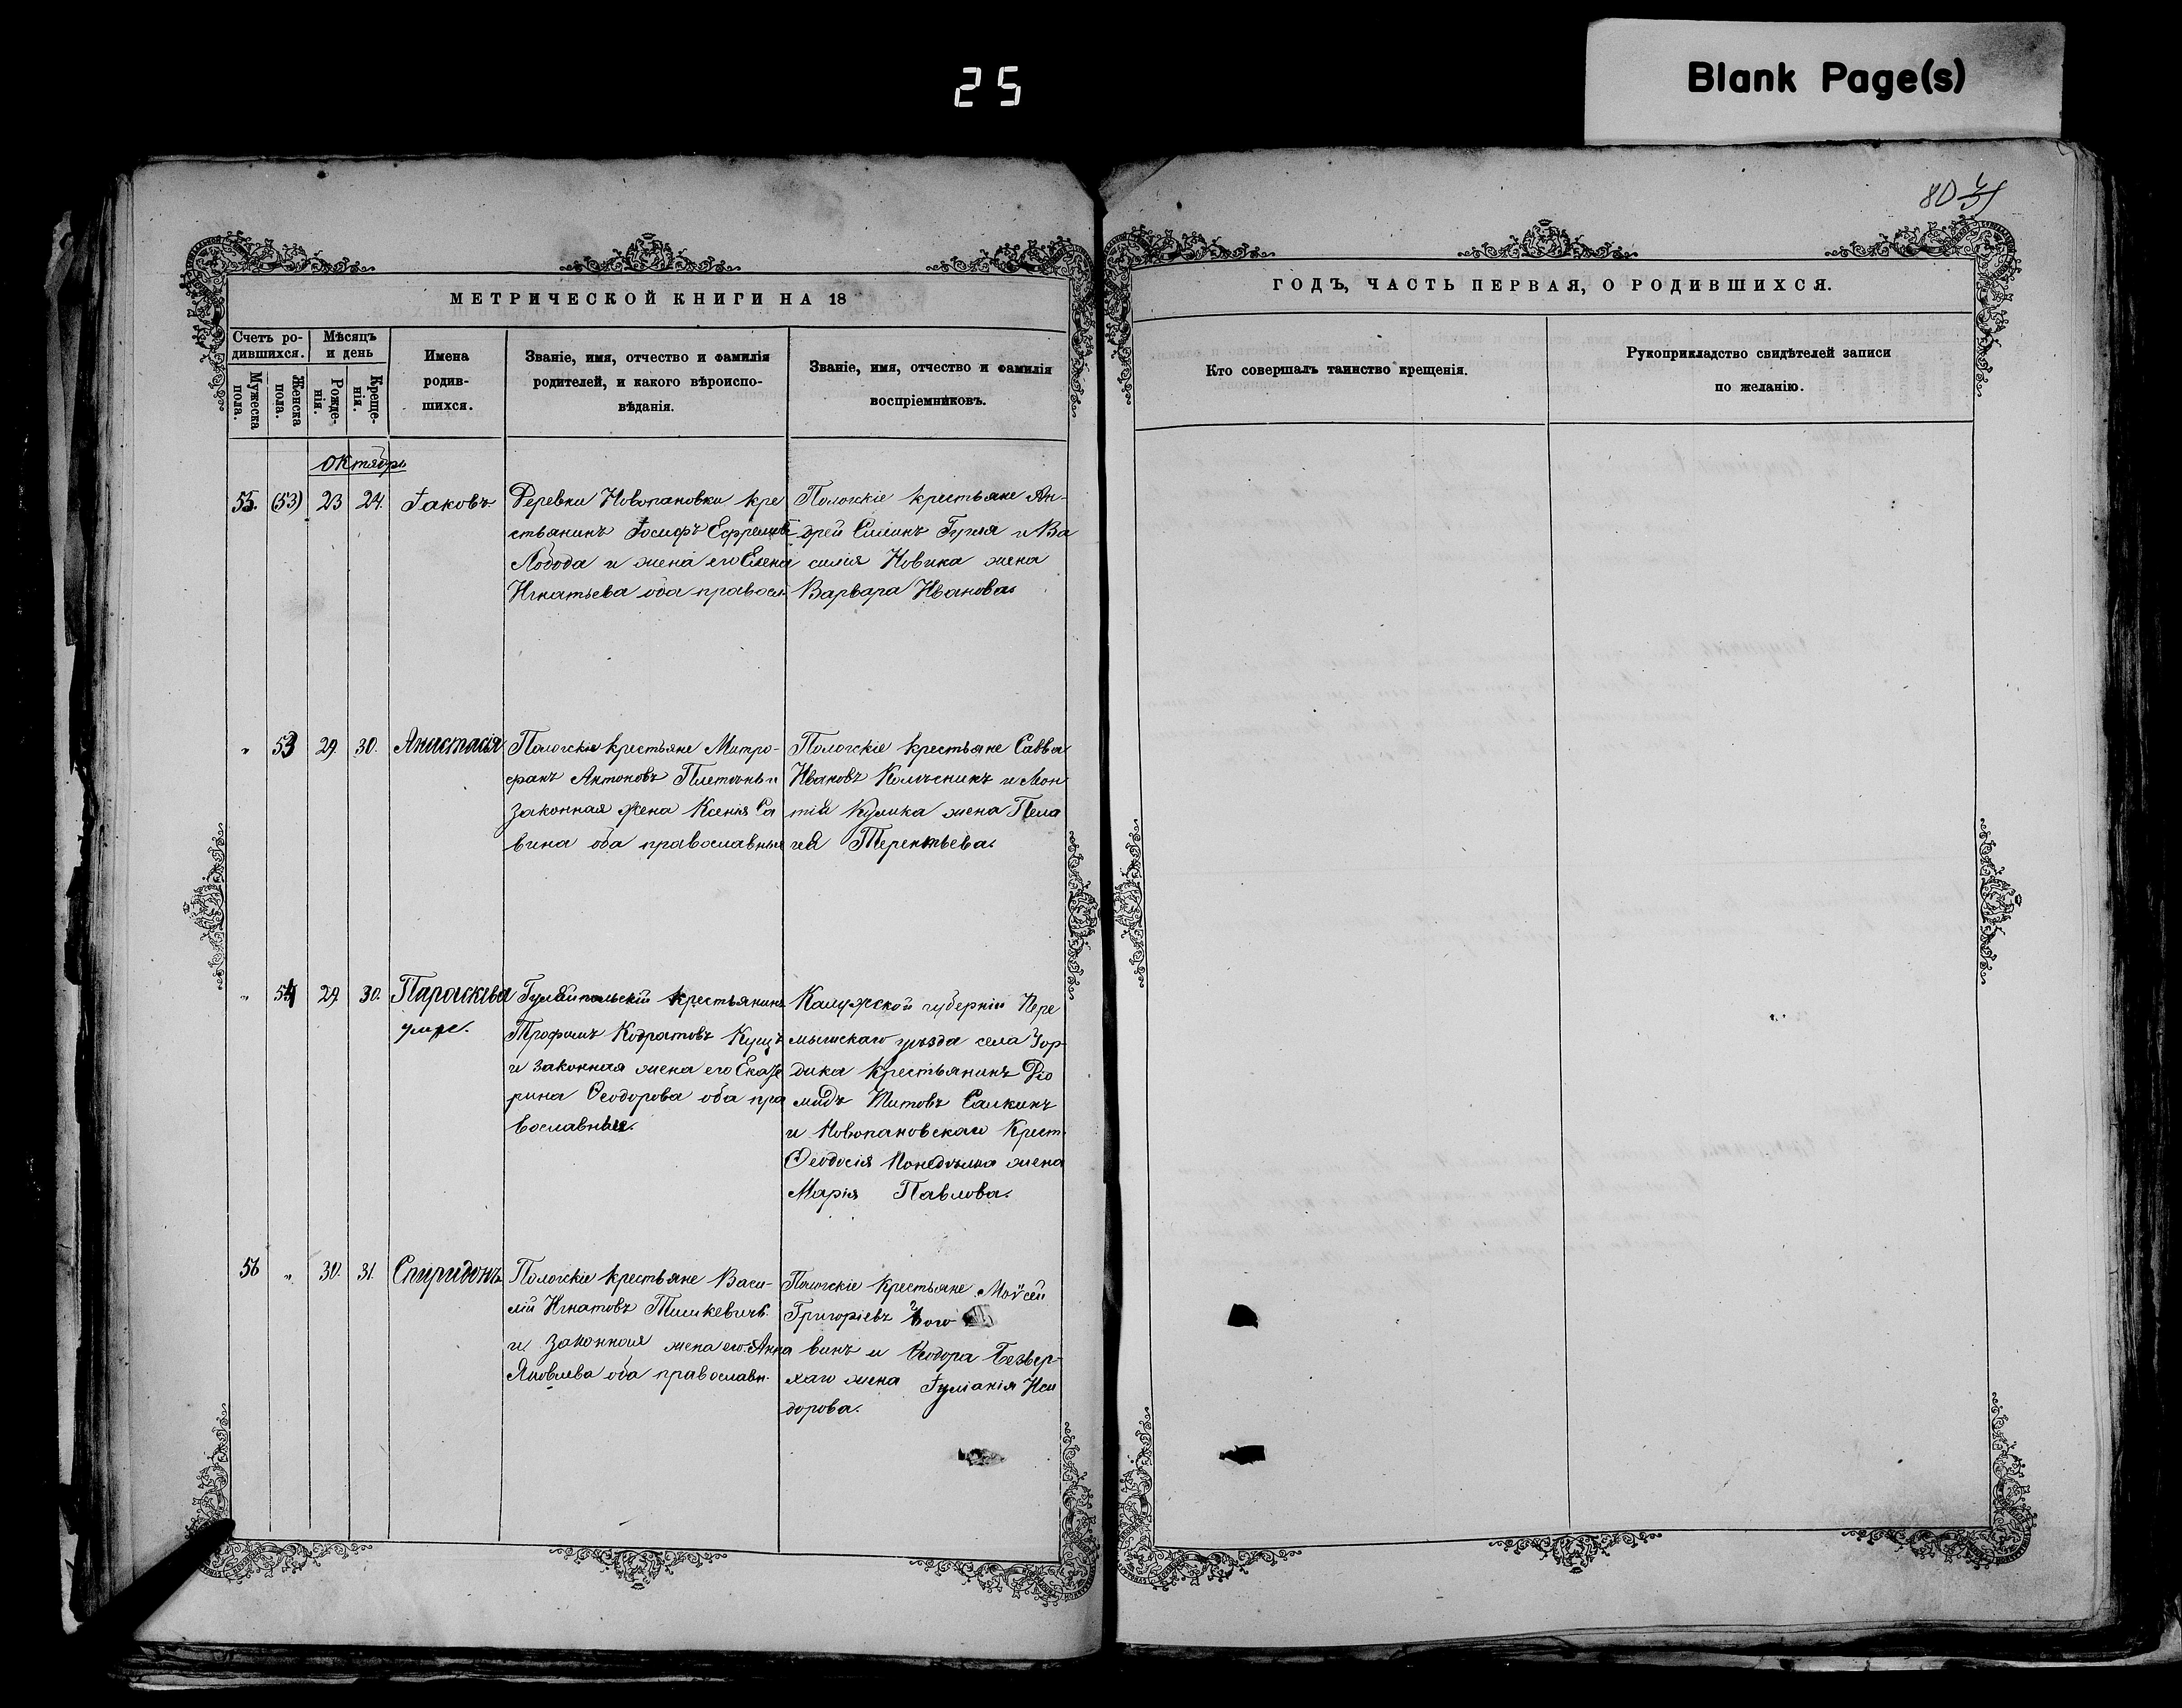 25
Blank Page(s)
80
МЕТРИЧЕСКОЙ КНИГИ НА 18
Счетъ ро-
дившихся.
Мѣсяцъ
и день
Мужеска
пола.
Женска
пола.
Рожде-
нія.
Креще-
нія.
Имена
родив-
шихся.
Званіе, имя, отчество и фамилія
родителей, и какого вѣроиспо-
вѣданія.
Званіе, имя, отчество и фамилія
воспріемниковъ.
Октябрь
55. (53) 23 24. Іаковъ
Деревни Новопановки кре
стьянинъ Іосифъ Ефремовъ
Лобода и жена его Елена
Игнатьева оба правосл.
Пологскіе крестьяне Ан-
дрей Гурля и Ва
силія Новика жена
Варвара Иванова.
" 53 29 30. Анастасія
Пологскіе крестьяне Митро-
фанъ Антоновъ и
законная жена Ксенія Са
вина оба православные
Пологскіе крестьяне Савва
Ивановъ Колѣсникъ и Леон
тія Кулика жена Пела
гея Терентьева.
" 54 29 30. Параскева
умре.
Гуляйпольскій крестьянинъ
Трофимъ Кодратовъ Куцъ
и законная жена его Екате
рина Ѳеодорова оба пра
вославные.
Калужской губерніи Пере
мышскаго уѣзда села
крестьянинъ Діо
мидъ Титовъ Салкинъ
и Новопановскаго Крест.
Ѳеодосія Понедѣлка жена
Марія Павлова.
56 " 30. 31. Спиридонъ
Пологскіе крестьяне Васи-
лій Игнатовъ Тишкевичъ
и законная жена его Анна
Яковлева оба православн.
Пологскіе крестьяне Мойсей
Григоріевъ
винъ и Ѳеодора Безвер-
хаго жена Іуліанія Иси
дорова.
ГОДЪ, ЧАСТЬ ПЕРВАЯ, О РОДИВШИХСЯ.
Кто совершалъ таинство крещенія.
Рукоприкладство свидѣтелей записи
по желанію.